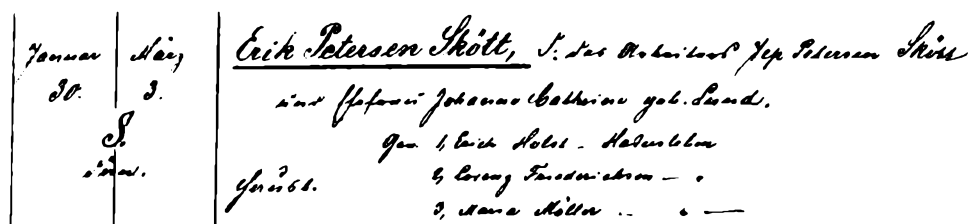 Januar März Erik Petersen Skött, S. des Arbeiters Jep Petersen Skött
30. 3. und Ehefrau Johanne Cathrine geb. Lund.
S. Gev. 1, Erich Holst - Hadersleben
2, Lorenz Friederichsen - "
3, Maria Möller " " -